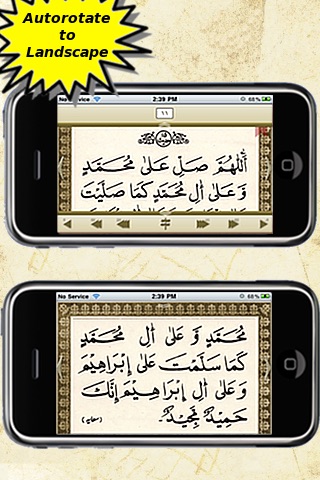 Autorotate
to
Landscape
No Service 2:39 PM 68%
١١
اَللّٰهُمَّ صَلِّ عَلٰى مُحَمَّدٍ
وَعَلٰى اٰلِ مُحَمَّدٍ كَمَا صَلَّيْتَ
No Service 2:39 PM 68%
مُحَمَّدٍ وَّ عَلٰى اٰلِ مُحَمَّدٍ
كَمَا سَلَّمْتَ عَلٰى اِبْرَاهِيْمَ
وَعَلٰى اٰلِ اِبْرَاهِيْمَ اِنَّكَ
حَمِيْدٌ مَّجِيْدٌ.